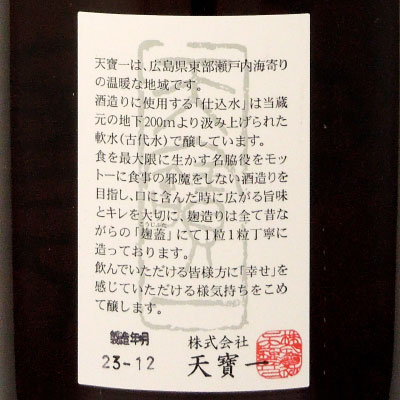 天寶一は、広島県東部瀬戸内海寄り
の温暖な地域です。
酒造りに使用する「仕込水」は当蔵
元の地下200mより汲み上げられた
軟水(古代水)で醸しています。
食を最大限に生かす名脇役をモッ
トーに食事の邪魔をしない酒造りを
目指し、口に含んだ時に広がる旨味
とキレを大切に、麹造りは全て昔な
こうじぶた
がらの「麹蓋」にて1粒1粒丁寧に
造っております。
飲んでいただける皆様方に「幸せ」を
感じていただける様気持ちをこめ
て醸します。
製造年月
23-12
株式会社
天寶一